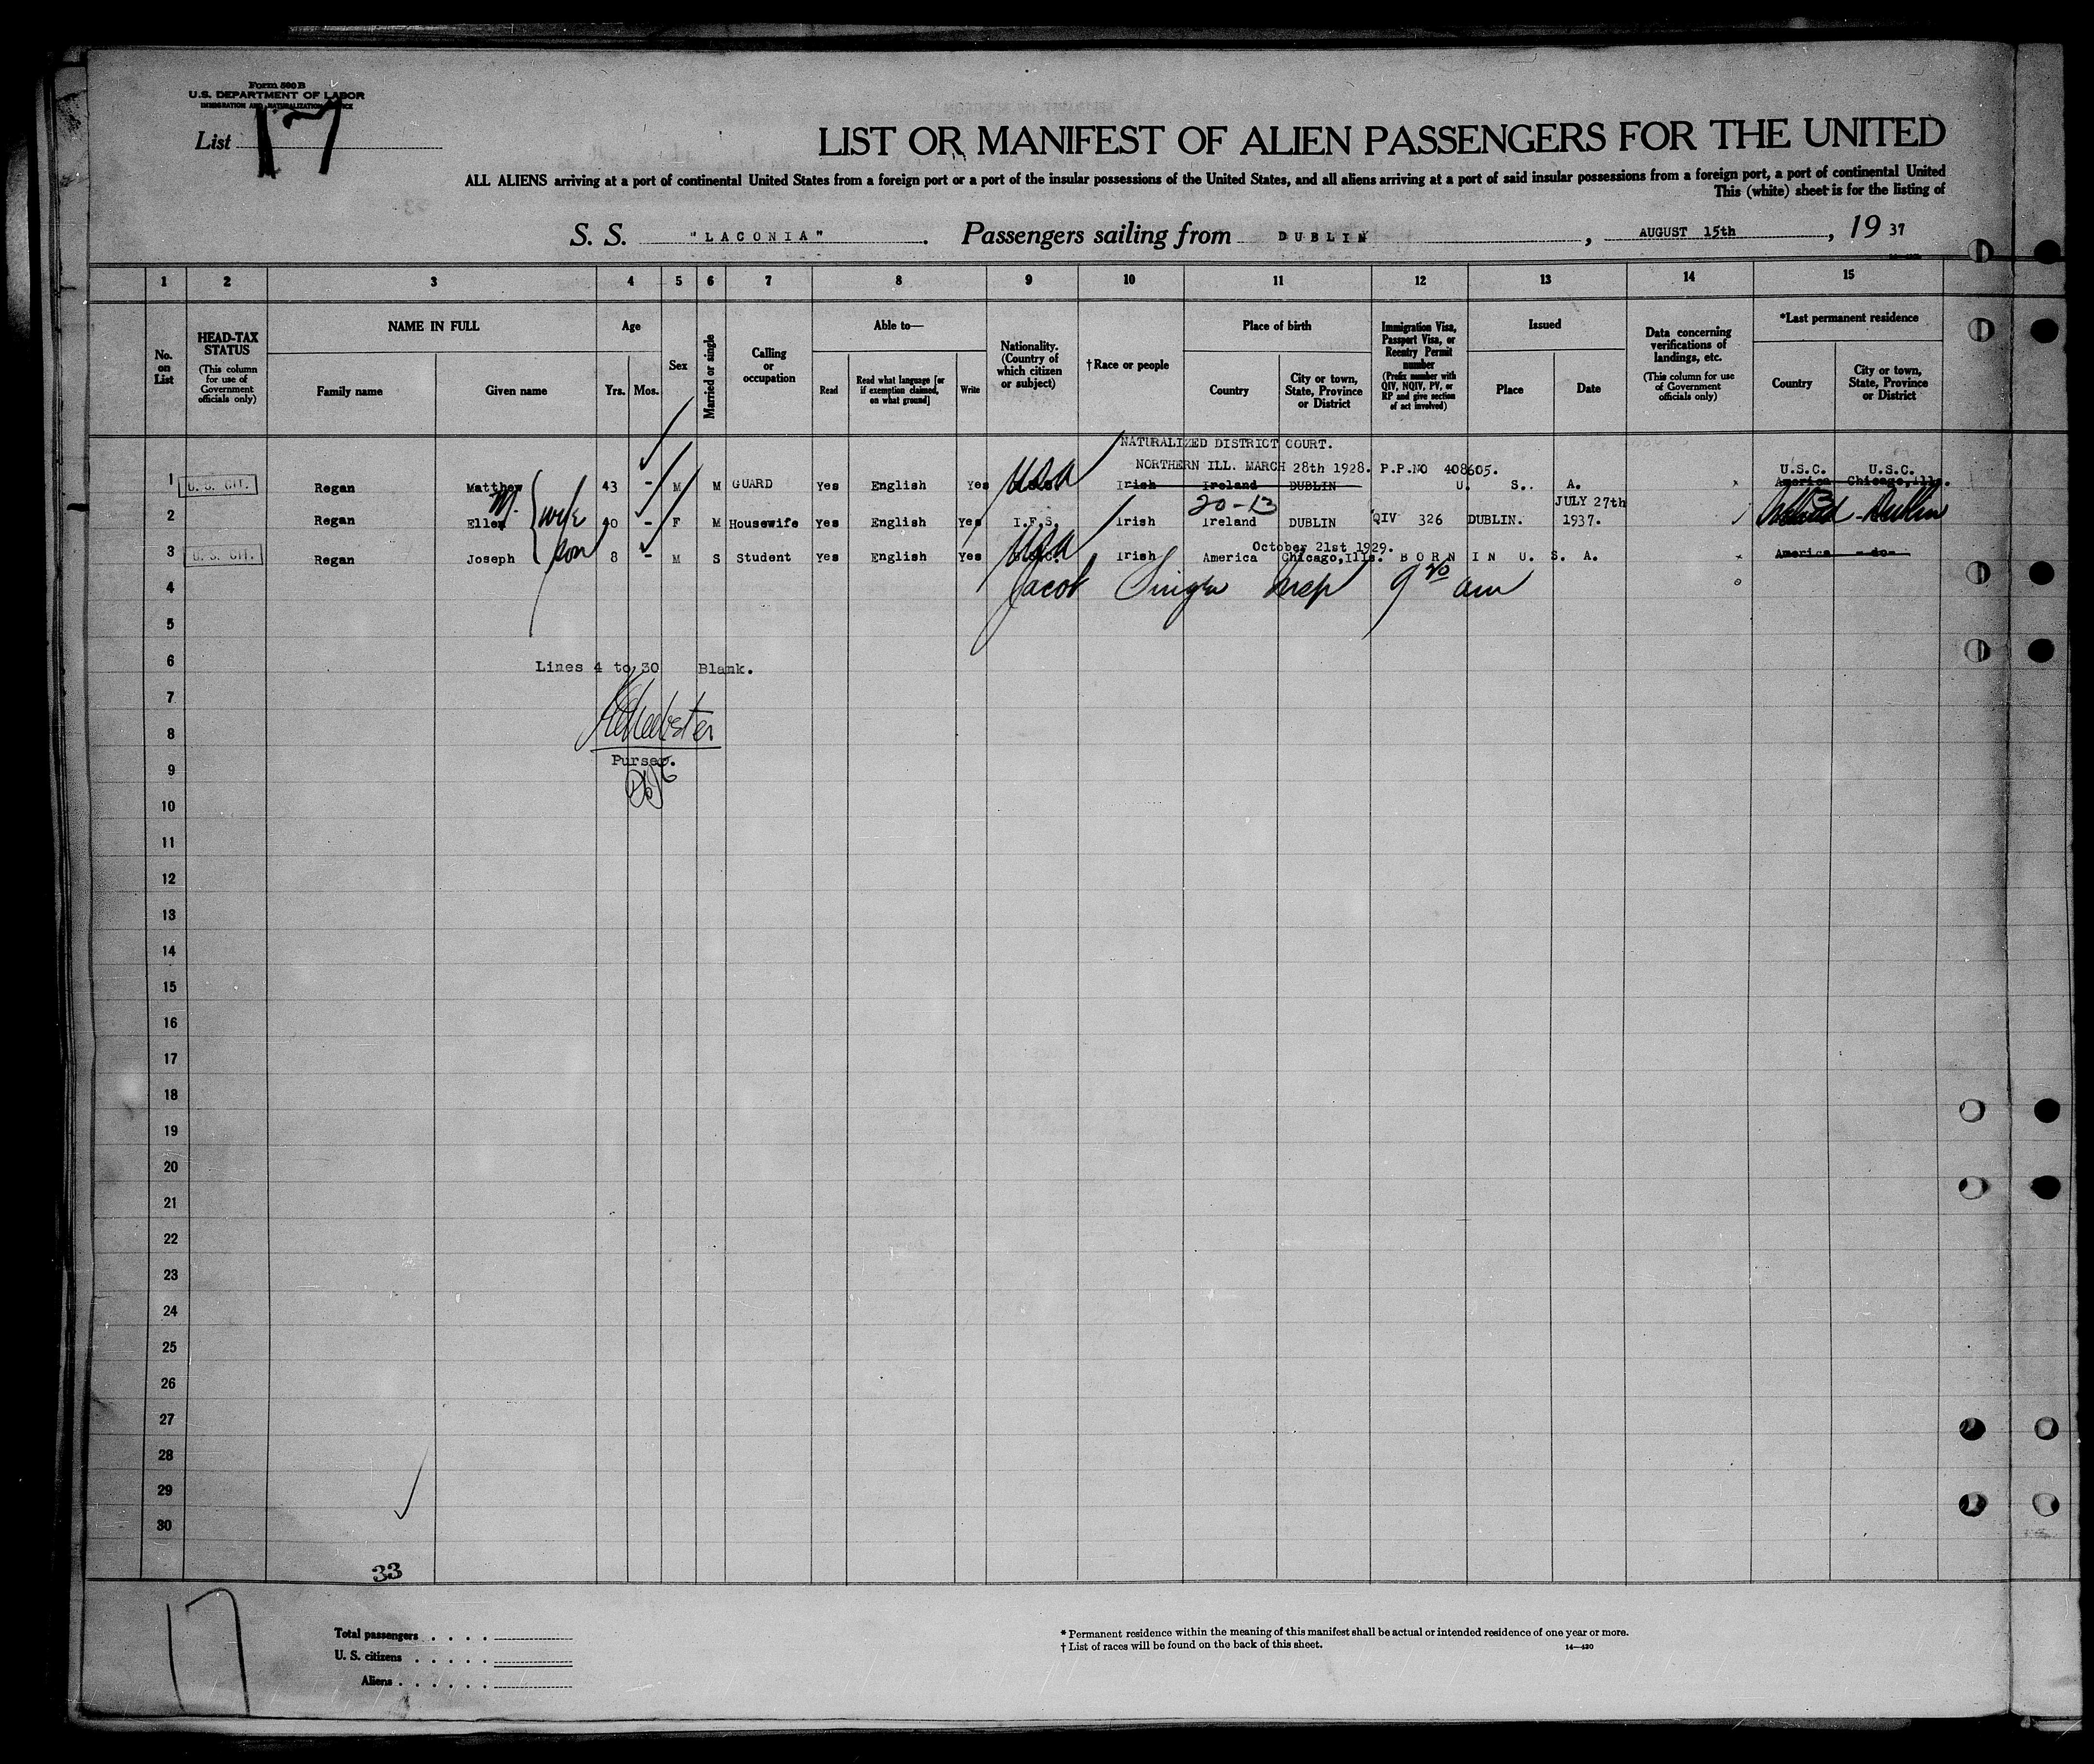 Form 500 B
U.S. DEPARTMENT OF LABOR
IMMIGRATION AND NATURALIZATION SERVICE
List 17
LIST OR MANIFEST OF ALIEN PASSENGERS FOR THE UNITED
ALL ALIENS arriving at a port of continental United States from a foreign port or a port of the insular possessions of the United States, and all aliens arriving at a port of said insular possessions from a foreign port, a port of continental United
This (white) sheet is for the listing of
S. S. "LACONIA". Passengers sailing from DUBLIN, AUGUST 15th, 19 37
1 2 3 4 5 6 7 8 9 10 11 12 13 14 15
No. on List
HEAD-TAX STATUS (This column for use of Government officials only)
NAME IN FULL
Family name Given name
Age
Yrs. Mos.
Sex
Married or single
Calling or occupation
Able to—
Read Read what language [or if exemption claimed, on what ground] Write
Nationality. (Country of which citizen or subject)
† Race or people
Place of birth
Country City or town, State, Province or District
Immigration Visa, Passport Visa, or Reentry Permit number (Prefix number with QIV, NQIV, PV, or RP and give section of act involved)
Issued
Place Date
Data concerning verifications of landings, etc. (This column for use of Government officials only)
*Last permanent residence
Country City or town, State, Province or District
NATURALIZED DISTRICT COURT.
NORTHERN ILL. MARCH 28th 1928. P.P.NO 408605. U.S.C. U.S.C.
1 U. S. CIT. Regan Matthew 43 - M M GUARD Yes English Yes USA Irish Ireland DUBLIN U. S. A. America Chicago,Ill.
20-13 JULY 27th
2 Regan Ellen M. wife 40 - F M Housewife Yes English Yes I.F.S. Irish Ireland DUBLIN QIV 326 DUBLIN. 1937. Dublin
October 21st 1929.
3 U. S. CIT. Regan Joseph son 8 - M S Student Yes English Yes USA Irish America Chicago,Ills. BORN IN U. S. A. America -do-
4 Jacob 9 20 am
5
6 Lines 4 to 30 Blank.
7
8 Webster
9 Purser.
10
11
12
13
14
15
16
17
18
19
20
21
22
23
24
25
26
27
28
29
30
33
17
Total passengers
U. S. citizens
Aliens
* Permanent residence within the meaning of this manifest shall be actual or intended residence of one year or more.
† List of races will be found on the back of this sheet. 14—420